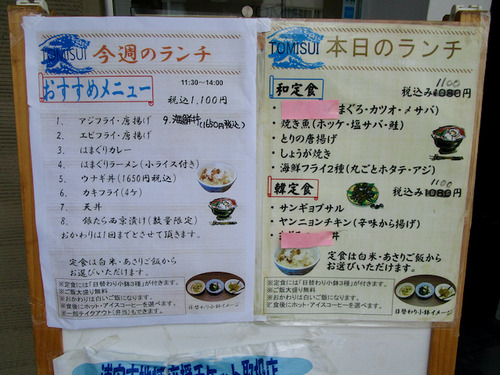 TOMISUI 今週のランチ
おすすめメニュー
11:30-14:00
税込1,100円
1. アジフライ・唐揚げ
2. エビフライ・唐揚げ
3. はまぐりカレー
4. はまぐりラーメン(小ライス付き)
5. ウナギ丼(1650円税込)
6. カキフライ(4ケ)
7. 天丼
8. 銀たら西京漬け(数量限定)
9. 海鮮丼(1650円税込)
おかわりは1回までとさせて頂きます。
定食は白米・あさりご飯から
お選びいただけます。
※定食には「日替わり小鉢3種」が付きます。
※ご飯大盛り無料
※おかわりは白いご飯になります。
※食後にホット・アイスコーヒーを選べます。
※一部テイクアウト(弁当)もできます。
日替わり小鉢イメージ
TOMISUI 本日のランチ
和定食
税込み1080円
1100
まぐろ・カツオ・メサバ
・焼き魚(ホッケ・塩サバ・鮭)
・とりの唐揚げ
・しょうが焼き
・海鮮フライ2種(丸ごとホタテ・アジ)
韓定食
税込み1080円
1100
・サンギョプサル
・ヤンニョンチキン(辛味から揚げ)
丼
定食は白米・あさりご飯から
お選びいただけます。
※定食には「日替わり小鉢3種」が付きます。
※ご飯大盛り無料
※おかわりは白いご飯になります。
※食後にホット・アイスコーヒーを選べます。
日替わり小鉢イメージ